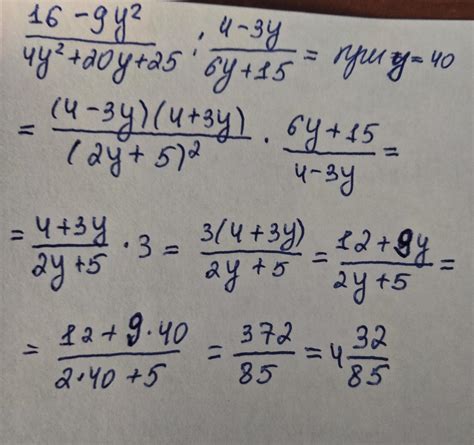 (16 - 9y²)/(4y² + 20y + 25) : (4 - 3y)/(6y + 15) = при y = 40
= ((4 - 3y)(4 + 3y))/((2y + 5)²) · (6y + 15)/(4 - 3y) =
= (4 + 3y)/(2y + 5) · 3 = (3(4 + 3y))/(2y + 5) = (12 + 9y)/(2y + 5) =
= (12 + 9·40)/(2·40 + 5) = 372/85 = 4 32/85